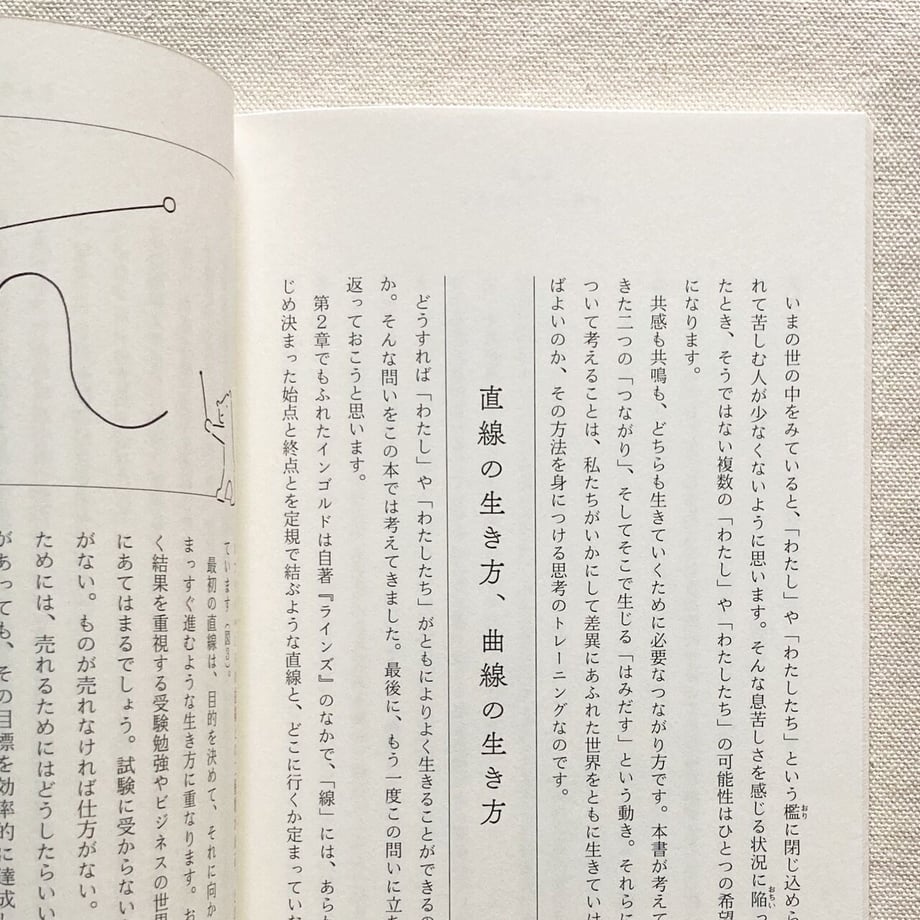 いまの世の中をみていると、「わたし」や「わたしたち」という檻に閉じ込めら
れて苦しむ人が少なくないように思います。そんな息苦しさを感じる状況に陥っ
たとき、そうではない複数の「わたし」や「わたしたち」の可能性はひとつの希望
になります。
共感も共鳴も、どちらも生きていくために必要なつながり方です。本書が考えて
きた二つの「つながり」、そしてそこで生じる「はみだす」という動き。それらに
ついて考えることは、私たちがいかにして差異にあふれた世界をともに生きていけ
ばよいのか、その方法を身につける思考のトレーニングなのです。
直線の生き方、曲線の生き方
どうすれば「わたし」や「わたしたち」がともによりよく生きることができるの
か。そんな問いをこの本では考えてきました。最後に、もう一度この問いに立ち
返っておこうと思います。
第2章でもふれたインゴルドは自著『ラインズ』のなかで、「線」には、あらか
じめ決まった始点と終点とを定規で結ぶような直線と、どこに行くか定まっていな
ています
最初の直線は、目的を決めて、それに向か
まっすぐ進むような生き方に重なります。お
く結果を重視する受験勉強やビジネスの世界
にあてはまるでしょう。試験に受からない
がない。ものが売れなければ仕方がない。
ためには、売れるためにはどうしたらいい
があっても、その目標を効率的に達成し